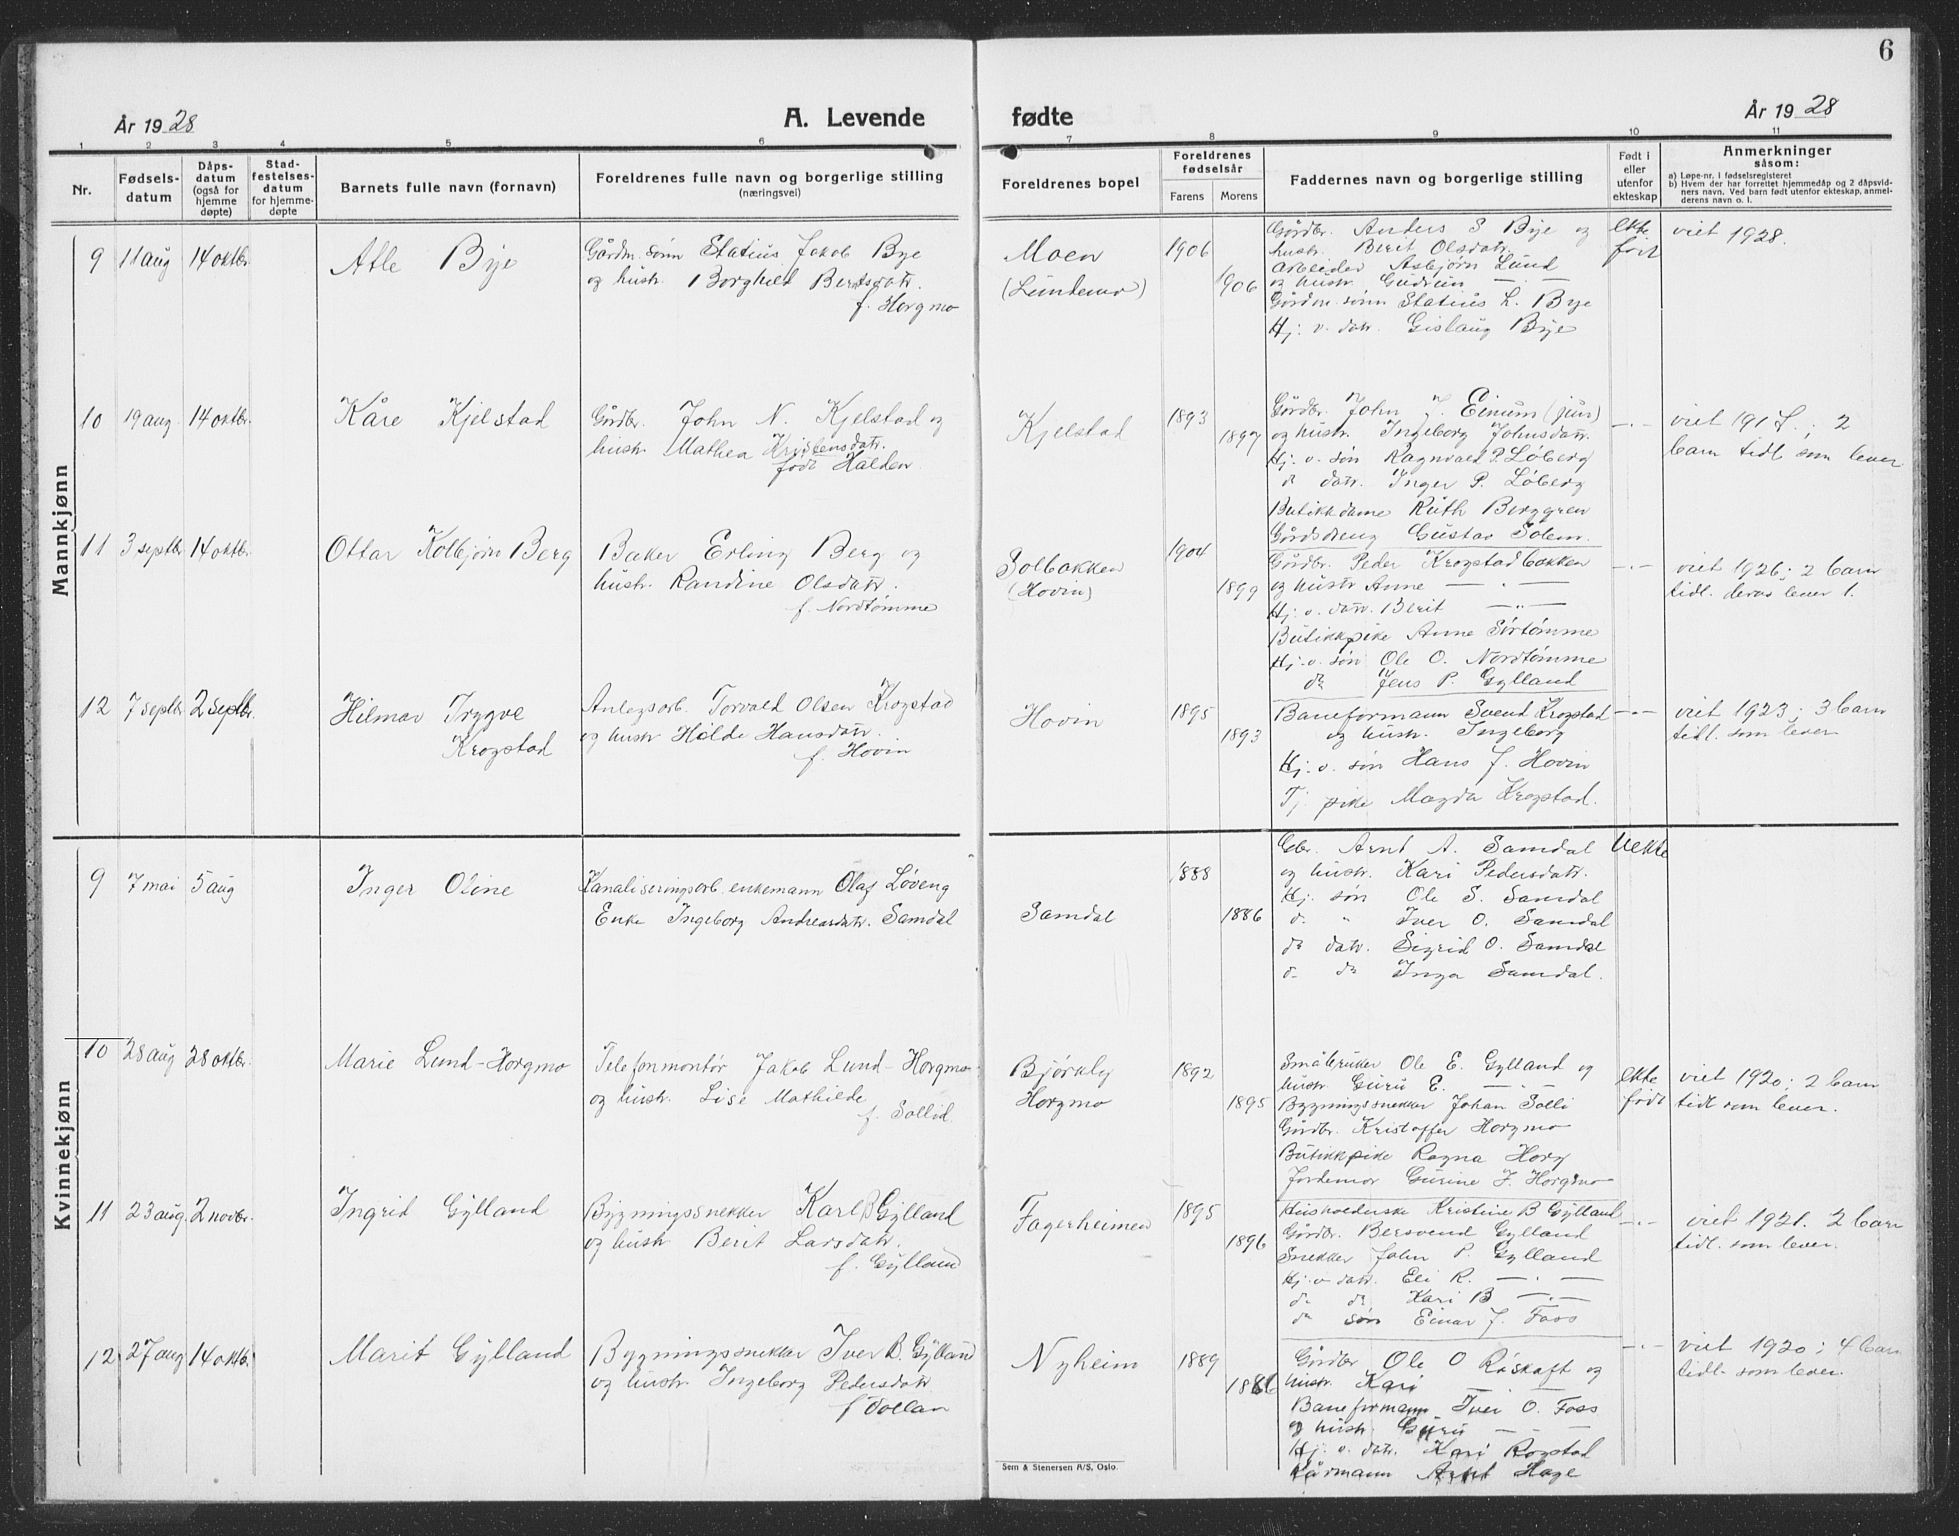 6
År 1928
A. Levende fødte
År 1928
1 2 3 4 5 6 7 8 9 10 11
Nr.
Fødselsdatum
Dåpsdatum (også for hjemmedøpte)
Stadfestelsesdatum for hjemmedøpte
Barnets fulle navn (fornavn)
Foreldrenes fulle navn og borgerlige stilling
(næringsvei)
Foreldrenes bopel
Foreldrenes fødselsår
Farens Morens
Faddernes navn og borgerlige stilling
Født i eller utenfor ekteskap
Anmerkninger
såsom:
a) Løpe-nr. i fødselsregisteret
b) Hvem der har forrettet hjemmedåp og 2 dåpsvidners navn. Ved barn født utenfor ekteskap, anmelderens navn o. l.
Mannkjønn
9 11 aug 14 oktbr. Atle Bye
Gårdm. sønn Statius Jakob Bye
og hustr. Borghild Berntsdatr.
f. Horgmo
Moen
(Lundemo)
1906
1906
Gårdbr. Anders S Bye og
hustr. Berit Olsdatr.
Arbeider Asbjørn Lund
og hustr. Gudrun — " —
Gårdm. sønn Statius L. Bye
Hj. v. datr. Gislaug Bye
ekte født
viet 1928.
10 19 aug 14 oktbr. Kåre Kjelstad
Gårdbr. John N. Kjelstad og
hustr. Mathea Kristensdatr.
født Halden
Kjelstad
1893
1897
Gårdbr. John J. Einum (jun)
og hustr. Ingeborg Johnsdatr.
Hj. v. søn Ragnvald P. Løberg
d datr. Inger P. Løberg
Butikkdame Ruth Berggren
Gårdsdreng Gustav Solem.
— " —
viet 1917.; 2
barn tidl som lever.
11 3 septbr. 14 oktbr. Ottar Kolbjørn Berg
Baker Erling Berg og
hustr. Randine Olsdatr.
f. Nordtømme
Solbakken
(Hovin)
1904
1899
Gårdbr. Peder Krogstadbakken
og hustr Anne — " —
Hj. v. datr. Berit — " —
Butikkpike Anne Sørtømme
Hj. v. søn Ole O. Nordtømme
do Jens P. Gylland
— " —
viet 1926; 2 barn
tidl. derav lever 1.
12 7 septbr 2 septbr. Hilmar Trygve
Krogstad
Anlegsarb. Torvald Olsen Krogstad
og hustr Hilde Hansdatr.
f. Hovin
Hovin
1895
1893
Baneformann Svend Krogstad
og hustr. Ingeborg
Hj. v. søn Hans J. Hovin
Tj. pike Magda Krogstad.
— " —
viet 1923; 3 barn
tidl. som lever
Kvinnekjønn
9 7 mai 5 aug Inger Oline
Kanaliseringsarb. enkemann Olaf Løveng
Enke Ingeborg Andreasdatr. Samdal
Samdal
1888
1886
Gbr. Arnt A. Samdal
og hustr. Kari Pedersdatr.
Hj. søn Ole S. Samdal
d. " Iver O. Samdal
do datr. Sigrid O. Samdal
d. do Inga Samdal.
Uekte
10 28 aug 28 oktbr. Marie Lund-Horgmo
Telefonmontør Jakob Lund-Horgmo
og hustr. Lise Mathilde
f. Sollid.
Bjørkly
Horgmo
1892
1895
Småbruker Ole E. Gylland og
hustr. Guru E. — " —
Bygningssnekker Johan Solli
Gårdbr. Kristoffer Horgmo
Butikkpike Ragna Horg
Jordemor Gurine J. Horgmo
ekte født
viet 1920; 2 barn
tidl som lever.
11 23 aug. 2 novbr. Ingrid Gylland
Bygningssnekker Karl B Gylland
og hustr Berit Larsdatr.
f. Gylland
Fagerheimen
1895
1896
Husholderske Kristine B Gylland
Gårdbr. Bersvend Gylland
Snekker John P. Gylland
Hj. v datr. Eli R. — " —
do do Kari B — " —
do søn Einar J. Foss
— " —
viet 1921. 2 barn
tidl. som lever.
12 27 aug 14 oktb. Marit Gylland
Bygningssnekker Iver B. Gylland
og hustr. Ingeborg Pedersdatr.
f Dollan
Nyheim
1889
Gårdbr Ole O Røskaft og
hustr. Kari — " —
Baneformann Iver O. Foss
og hustr. Guru — " —
Hj. v. datr. Kari Rogstad
Kårmann Arnt Hage
— " —
viet 1920; 4 barn
tidl. som lever.
Sem & Stenersen A/S, Oslo.